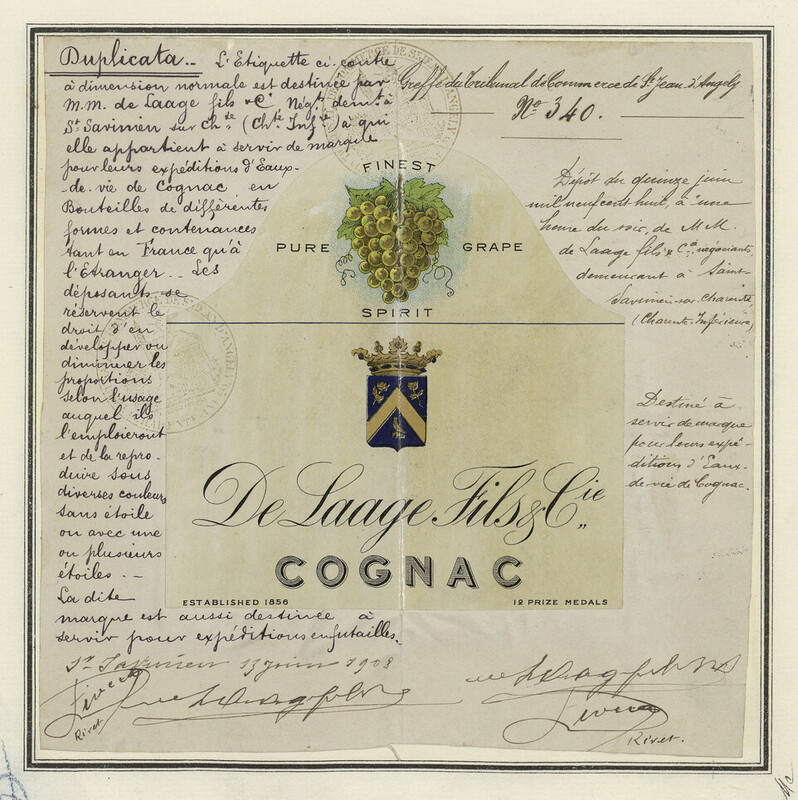 Duplicata.. L'Etiquette ci-contre
à dimension normale est destinée par
M.M. de Laage fils & Cie Négts demt à
St Savinien sur Chte (Chte Infre) à qui
elle appartient à servir de marque
pour leurs expéditions d'Eaux-
-de vie de Cognac en
Bouteilles de différentes
formes et contenances
tant en France qu'à
l'Etranger.. Les
déposants se
réservent le
droit d'en
développer ou
diminuer les
proportions
selon l'usage
auquel ils
l'emploieront
et de la repro-
duire sous
diverses couleurs
sans étoile
ou avec une
ou plusieurs
étoiles. -
La dite
marque est aussi destinée à
servir pour expéditions en futailles.
St Savinien 13 juin 1908
Rivet
Greffe du Tribunal de Commerce de St Jean d'Angély
No 340.
Dépôt du quinze juin
mil neuf cent huit, à une
heure du soir, de M.M.
de Laage fils & Cie négociants
demeurant à Saint-
Savinien-sur-Charente,
(Charente-Inférieure)
Destiné à
servir de marque
pour leurs expé-
ditions d'Eaux-
de-vie de Cognac.
Rivet.
FINEST
PURE GRAPE
SPIRIT
De Laage Fils & Cie
COGNAC
ESTABLISHED 1856 12 PRIZE MEDALS